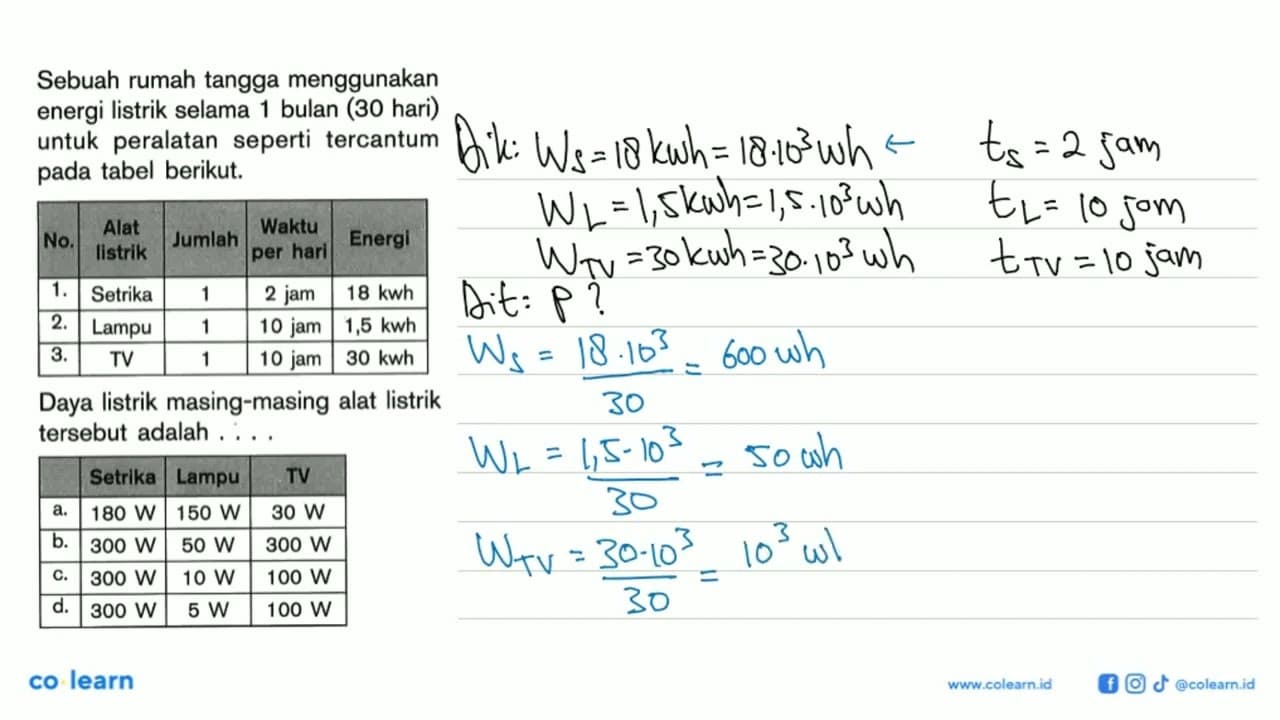 Sebuah rumah tangga menggunakan
energi listrik selama 1 bulan (30 hari)
untuk peralatan seperti tercantum
pada tabel berikut.
No. Alat listrik Jumlah Waktu per hari Energi
1. Setrika 1 2 jam 18 kwh
2. Lampu 1 10 jam 1,5 kwh
3. TV 1 10 jam 30 kwh
Daya listrik masing-masing alat listrik
tersebut adalah . . . .
Setrika Lampu TV
a. 180 W 150 W 30 W
b. 300 W 50 W 300 W
c. 300 W 10 W 100 W
d. 300 W 5 W 100 W
Dik: Ws = 18 kwh = 18·10³ wh ← ts = 2 jam
WL = 1,5 kwh = 1,5·10³ wh tL = 10 jam
WTV = 30 kwh = 30·10³ wh tTV = 10 jam
Dit: P?
Ws = 18·10³ / 30 = 600 wh
WL = 1,5·10³ / 30 = 50 wh
WTV = 30·10³ / 30 = 10³ wl
co learn
www.colearn.id @colearn.id